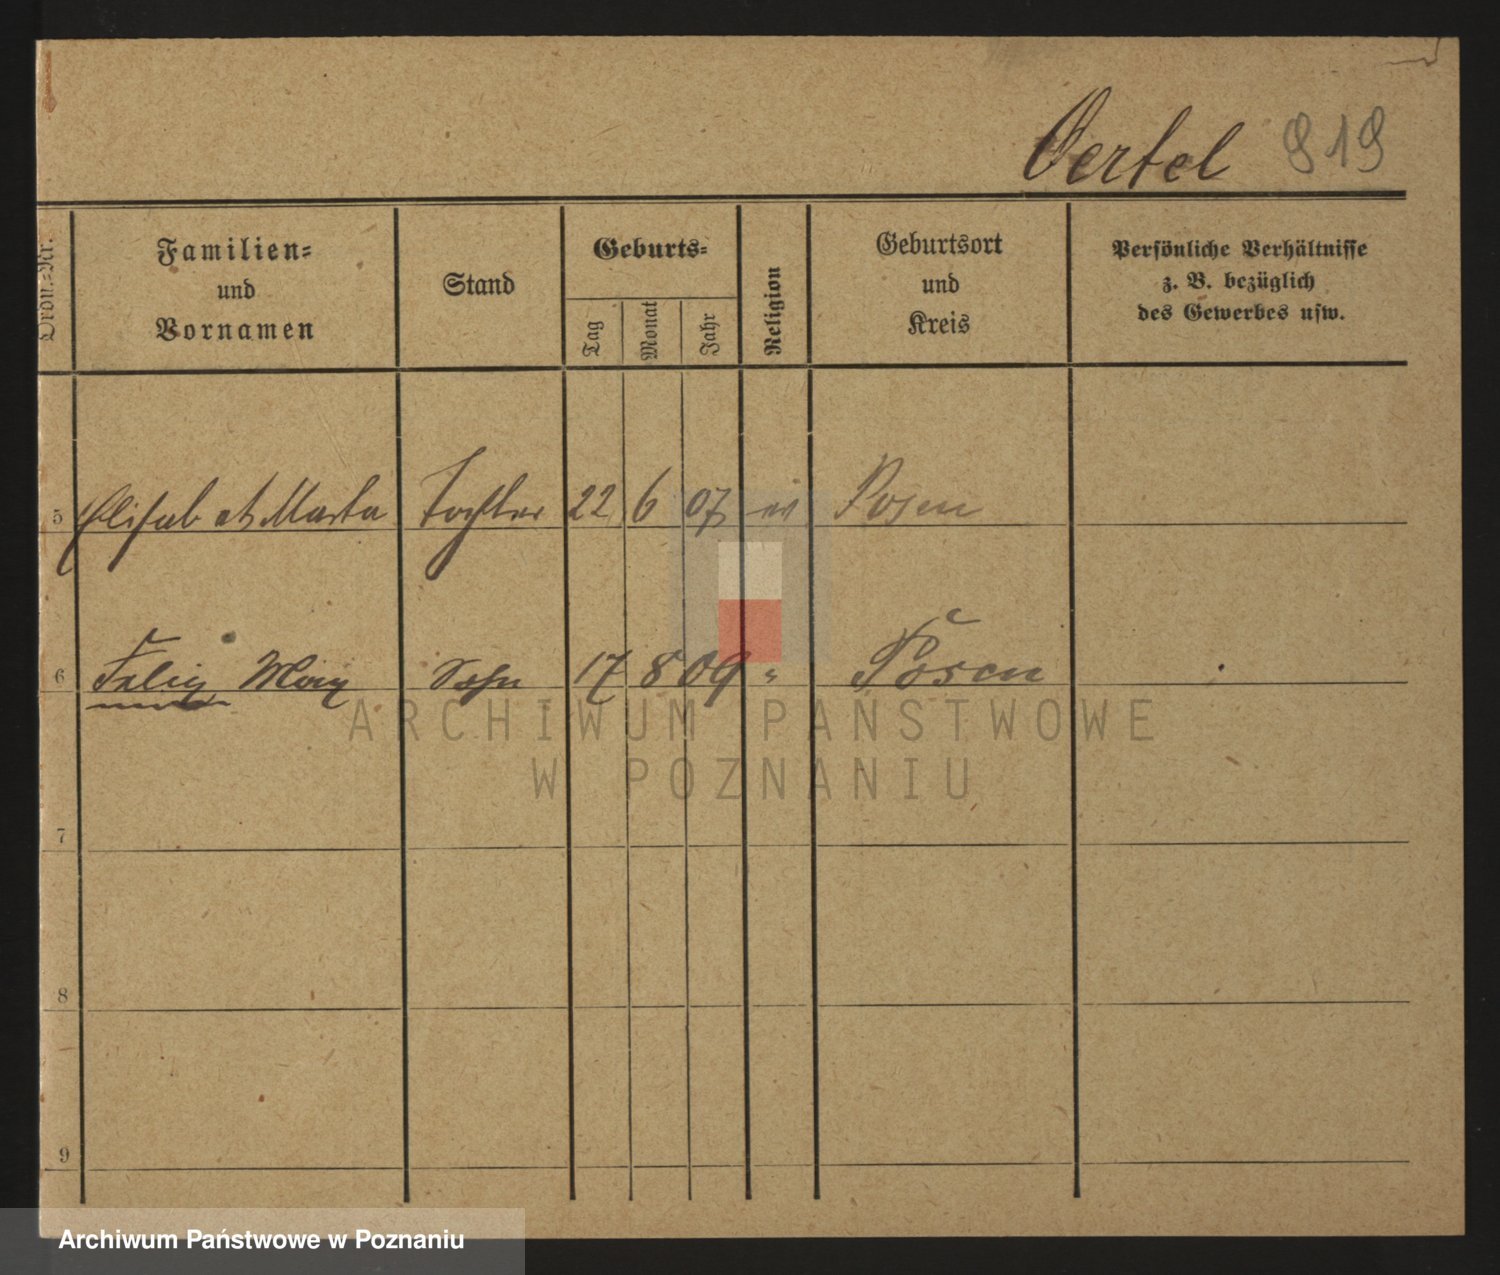 Oertel 819
Ordn.-Nr.
Familien-
und
Vornamen
Stand
Geburts-
Tag
Monat
Jahr
Religion
Geburtsort
und
Kreis
Persönliche Verhältnisse
z. B. bezüglich
des Gewerbes usw.
5 Elisabet Marta Tochter 22 6 07 ev Posen
6 Felix Sohn 17 8 09 " Posen
ARCHIWUM PAŃSTWOWE
W POZNANIU
7
8
9
Archiwum Państwowe w Poznaniu